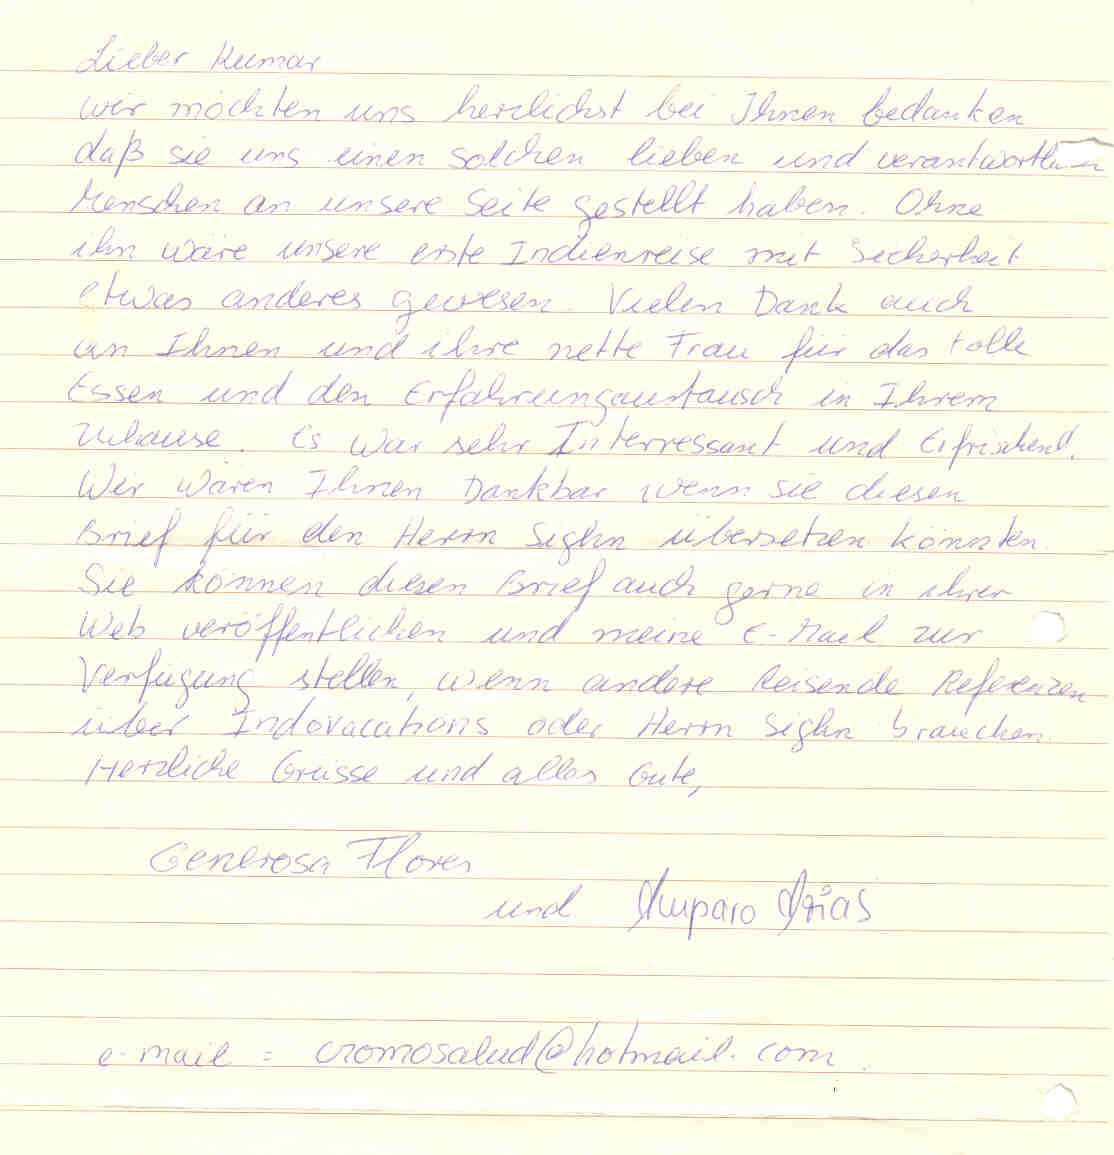 Lieber Kumar
wir möchten uns herzlichst bei Ihnen bedanken
daß sie uns einen solchen lieben und
Menschen an unsere Seite gestellt haben. Ohne
ihn wäre unsere erste Indienreise mit Sicherheit
etwas anderes gewesen. Vielen Dank auch
an Ihnen und ihre nette Frau für das tolle
Essen und den Erfahrungaustausch in Ihrem
zuhause. Es war sehr Interressant und Erfrischend.
Wir wären Ihnen Dankbar wenn sie diesen
Brief für den Herrn Sighn übersetzen könnten.
Sie können diesen Brief auch gerne in ihrer
Web veröffentlichen und meine E-Mail zur
Verfügung stellen, wenn andere Reisende Referenzen
über Indovacations oder Herrn Sighn brauchen.
Herzliche Grüsse und alles Gute,
Generosa Flores
und Amparo Arias
e-mail = cromosalud@hotmail.com.